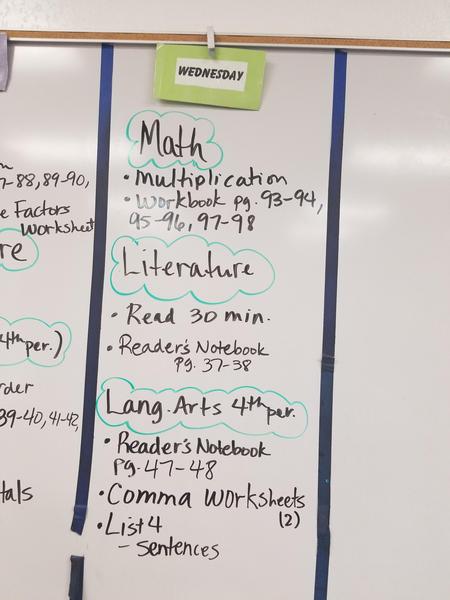 WEDNESDAY
Math
• Multiplication
• Workbook pg. 93-94,
95-96, 97-98
Literature
• Read 30 min.
• Reader's Notebook
Pg. 37-38
Lang. Arts 4th per.
• Reader's Notebook
pg. 47-48
• Comma Worksheets
(2)
• List 4
- Sentences
-88, 89-90,
e Factors
Worksheet
re
4th per.)
rder
39-40, 41-42,
tals